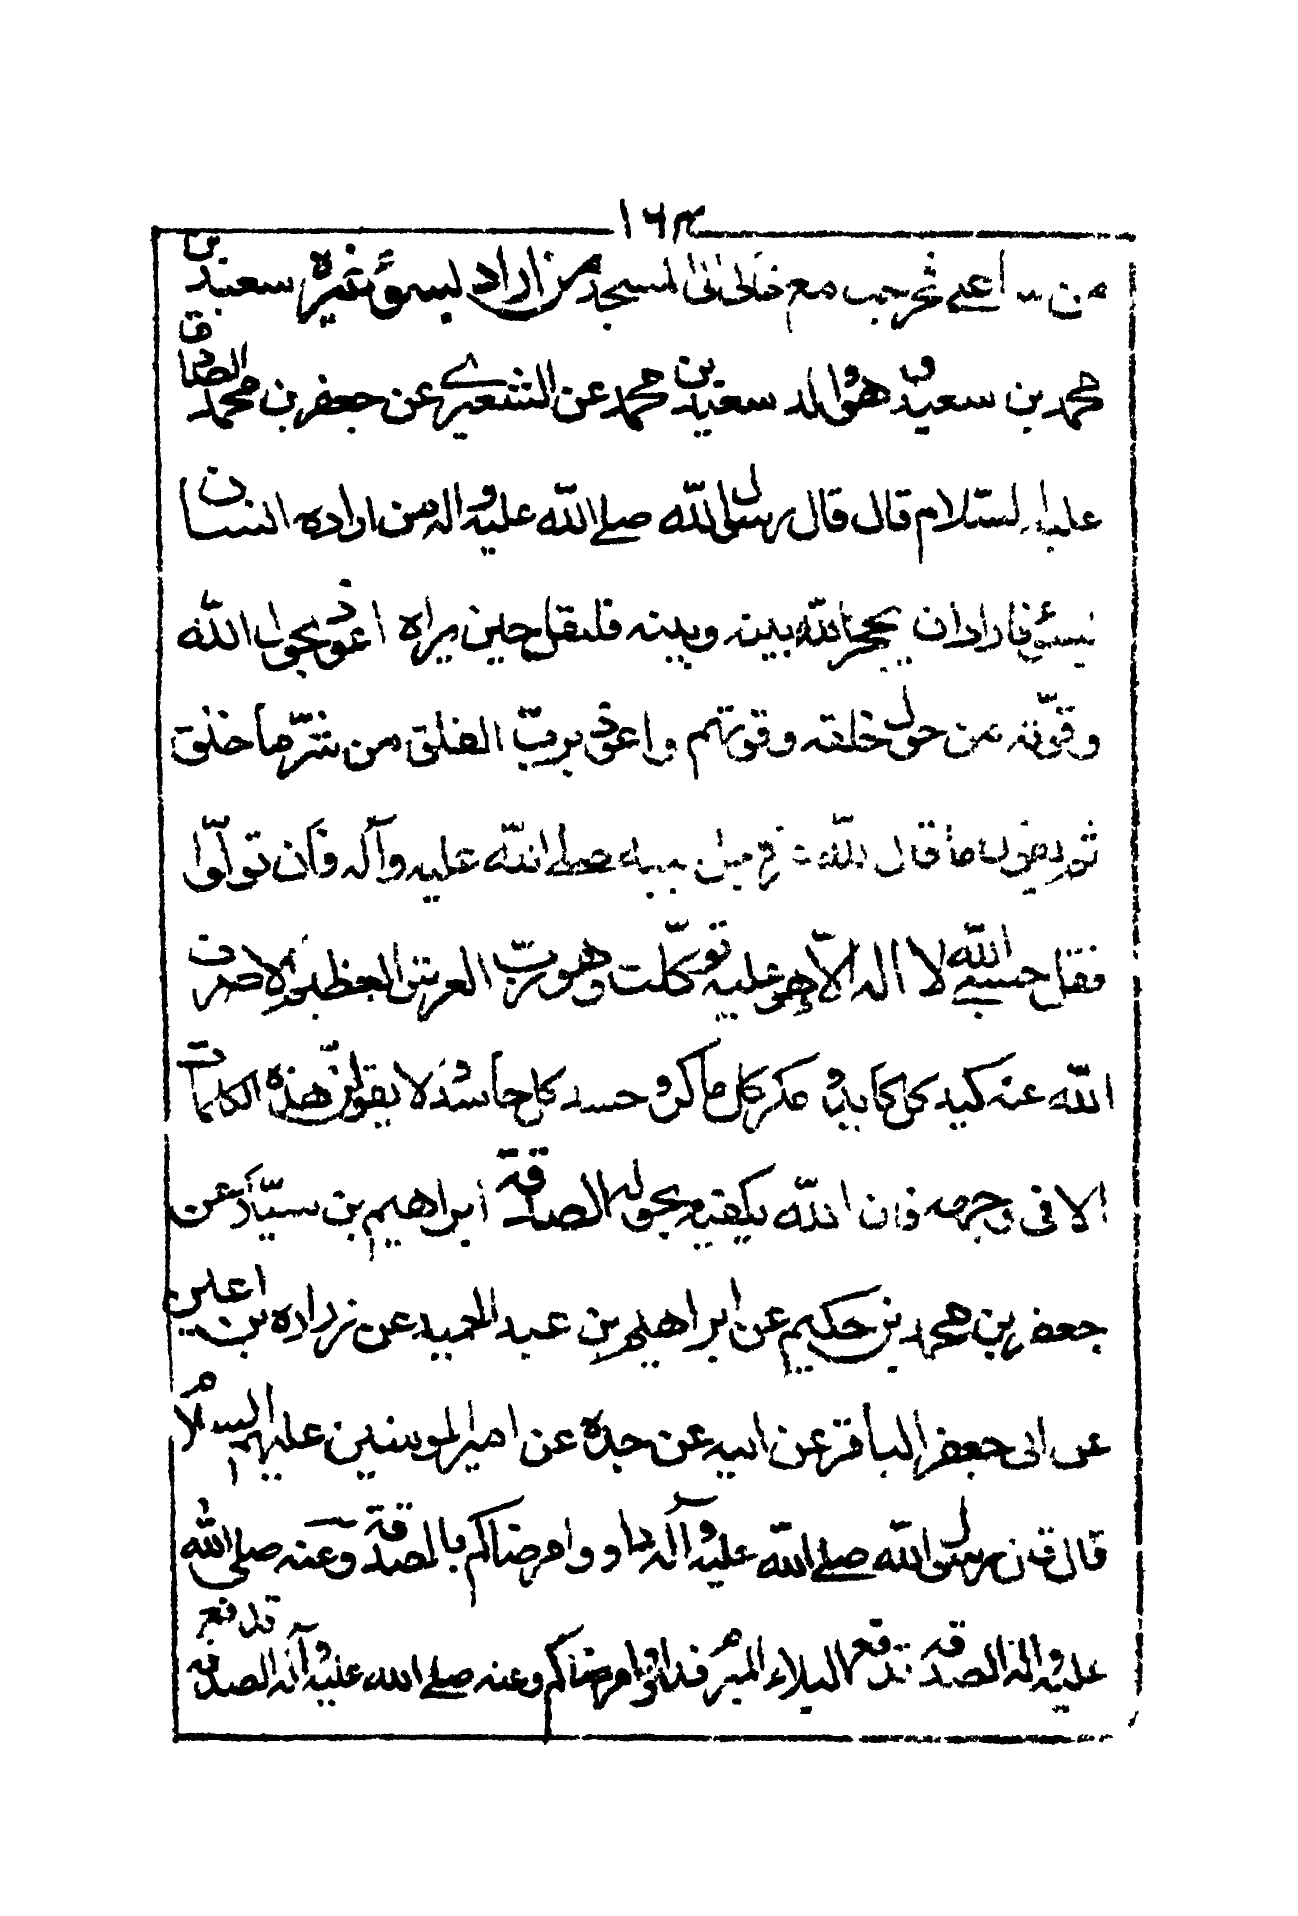 ١٦٣
من اعلى ثم رجب مع خالى الى المسجد من اراد بسوء بثمره سعيد بن
محمد بن سعيد وهو الد سعيد بن محمد عن الشعيرى عن جعفر بن محمد الصادق
عليه السلام قال قال رسول الله صلى الله عليه واله من اراده انسان
بسوء فاراد ان يحجز الله بينه وبينه فليقل حين يراه اعوذ بحول الله
وقوته من حول خلقه وقوتهم واعوذ برب الفلق من شر ما خلق
ثم يقول ما قال الله عز وجل لنبيه صلى الله عليه وآله فان تولوا
فقل حسبى الله لا اله الا هو عليه توكلت وهو رب العرش العظيم الا صرف
الله عنه كيد كل كايد ومكر كل ماكر وحسد كل حاسد ولا يقولن هذه الكلمات
الا فى وجهه فان الله يكفيه بحوله الصدقة ابراهيم بن سيار عن
جعفر بن محمد بن حكيم عن ابراهيم بن عبد الحميد عن زراره بن اعين
عن ابى جعفر الباقر عن ابيه عن جده عن امير المومنين عليهم السلام
قال قال رسول الله صلى الله عليه وآله داووا مرضاكم بالصدقة وعنه صلى الله
عليه واله الصدقة تدفع البلاء المبرم فداووا مرضاكم وعنه صلى الله عليه وآله الصدقه تدفع